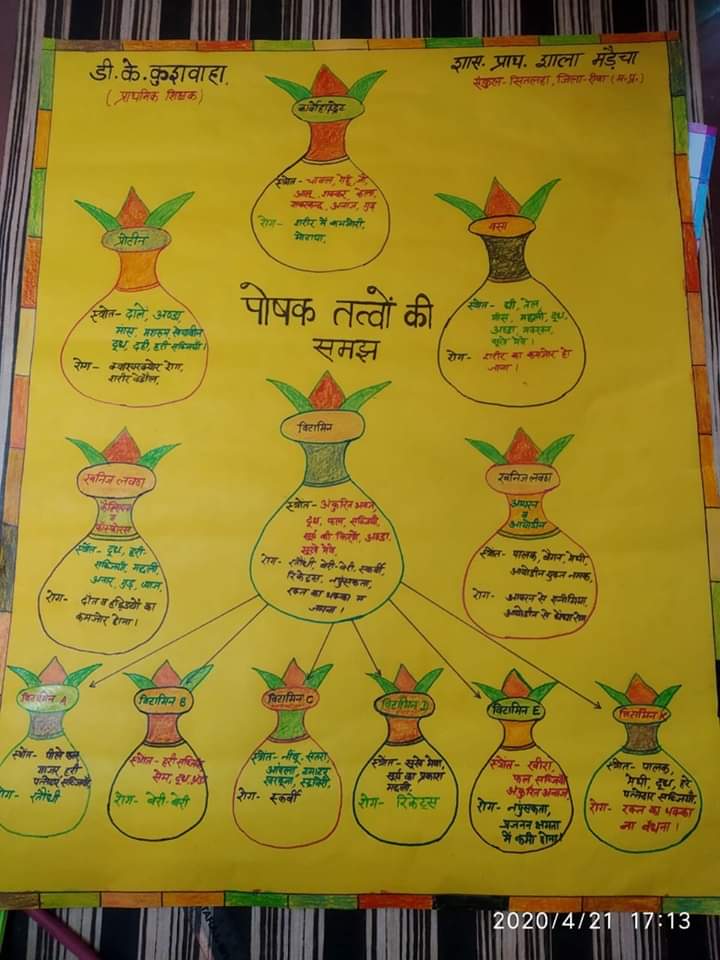 डी. के. कुशवाहा
(प्राथमिक शिक्षक)
शास. प्राथ. शाला मड़ैचा
संकुल- सितलहा, जिला-रीवा (म.प्र.)
कार्बोहाइड्रेट
स्त्रोत- चावल, गेहूँ, जौ,
आलू, शक्कर, केला,
शकरकन्द, अनाज, गुड़
रोग- शरीर में कमजोरी,
मोटापा,
प्रोटीन
स्त्रोत- दालें, अण्डा
मांस, मशरूम, सोयाबीन
दूध, दही, हरी सब्जियाँ।
रोग- क्वाशियरक्योर रोग,
शरीर बेडौल,
वसा
स्त्रोत- घी, तेल
मांस, मछली, दूध,
अण्डा, मक्खन,
सूखे मेवे।
रोग- शरीर का कमजोर हो
जाना।
पोषक तत्वों की
समझ
विटामिन
स्त्रोत- अंकुरित अनाज,
दूध, फल, सब्जियाँ,
सूर्य की किरणें, अण्डा,
सूखे मेवे,
रोग- रतौंधी, बेरी-बेरी, स्कर्वी,
रिकेट्स, नपुंसकता,
रक्त का थक्का न
जमना।
खनिज लवण
कैल्शियम
व
फॉस्फोरस
स्त्रोत- दूध, हरी-
सब्जियाँ, मछली
अनार, गुड़, प्याज,
रोग- दाँत व हड्डियों का
कमजोर होना।
खनिज लवण
आयरन
व
आयोडीन
स्त्रोत- पालक, बैंगन, मेथी,
आयोडीन युक्त नमक,
रोग- आयरन से एनीमिया,
आयोडीन से घेंघारोग
विटामिन A
स्त्रोत- पीले फल
गाजर, हरी
पत्तेदार सब्जियाँ,
रोग- रतौंधी
विटामिन B
स्त्रोत- हरी सब्जियाँ
सेम, दूध,
रोग- बेरी-बेरी
विटामिन C
स्त्रोत- नींबू, संतरा,
आंवला, टमाटर
खरबूजा,
रोग- स्कर्वी
विटामिन D
स्त्रोत- सूखे मेवा,
सूर्य का प्रकाश
मछली,
रोग- रिकेट्स
विटामिन E
स्त्रोत- खीरा,
फल सब्जियाँ
अंकुरित अनाज,
रोग- नपुंसकता,
प्रजनन क्षमता
में कमी होना।
विटामिन K
स्त्रोत- पालक,
मेथी, दूध, हरे
पत्तेदार सब्जियाँ,
रोग- रक्त का थक्का
ना बंधना।
2020/4/21 17:13